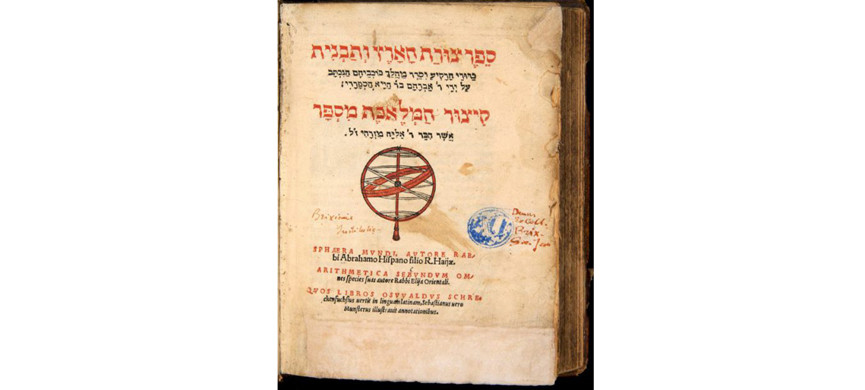 סֵפֶר צוּרַת הָאָרֶץ וְתַבְנִית
כדורי הרקיע וסדר מהלך כוכביהם הנכתב
על ידי ר׳ אברהם בר חייא הספרדי׃
קִיצוּר הַמְלֶאכֶת מִסְפָּר
אשר חבר ר׳ אליה מזרחי ז׳ל.
SPHÆRA MVNDI, AVTORE RAB-
bi Abrahamo Hispano filio R. Haijæ.
ARITHMETICA SECVNDVM OM-
nes species suas autore Rabbi Elija Orientali.
QVOS LIBROS OSVVALDVS SCHRE-
ckenfuchsius uertit in linguam latinam, Sebastianus uero
Munsterus illustrauit annotationibus.